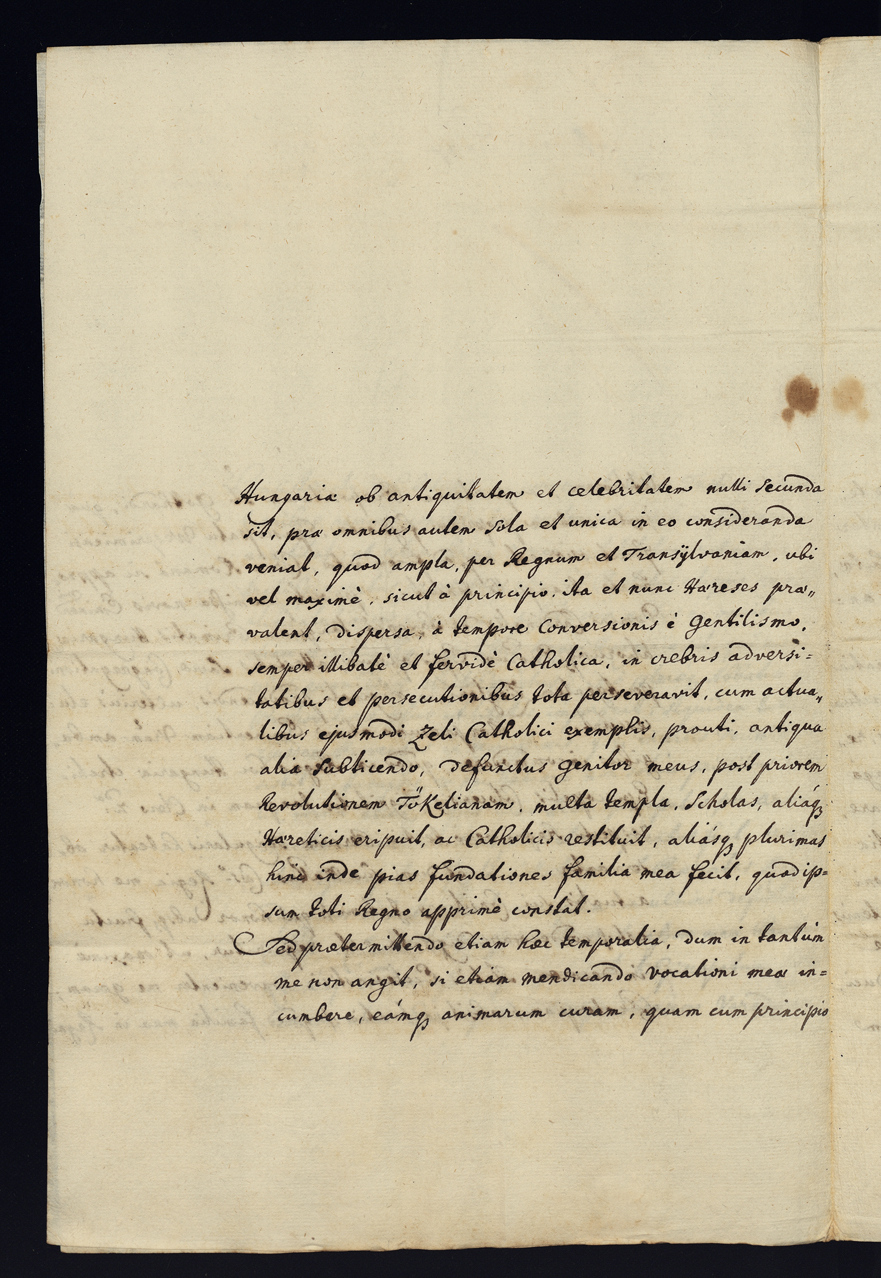 Hungariæ ob antiquitatem et celebritatem nulli secunda
sit, præ omnibus autem sola et unica in eo consideranda
veniat, quod ampla, per Regnum et Transÿlvaniam, ubi
vel maximè, sicut à principio, ita et nunc Hæreses præ„
valent, dispersa, à tempore Conversionis è Gentilismo,
semper illibatè et fervidè Catholica, in crebris adversi=
tatibus et persecutionibus tota perseveravit, cum actua„
libus ejusmodi Zeli Catholici exemplis, prouti, antiqua
alia subticendo, defunctus Genitor meus, post priorem
Revolutionem Tökelianam, multa templa, Scholas, aliáq₃
Hæreticis eripuit, ac Catholicis restituit, aliásq₃ plurimas
hinc inde pias fundationes familia mea fecit, quod ip=
sum toti Regno apprimè constat.
Sed prætermittendo etiam hæc temporalia, dum in tantùm
me non angit, si etiam mendicando vocationi meæ in=
cumbere, eámq₃ animarum curam, quam cum principio